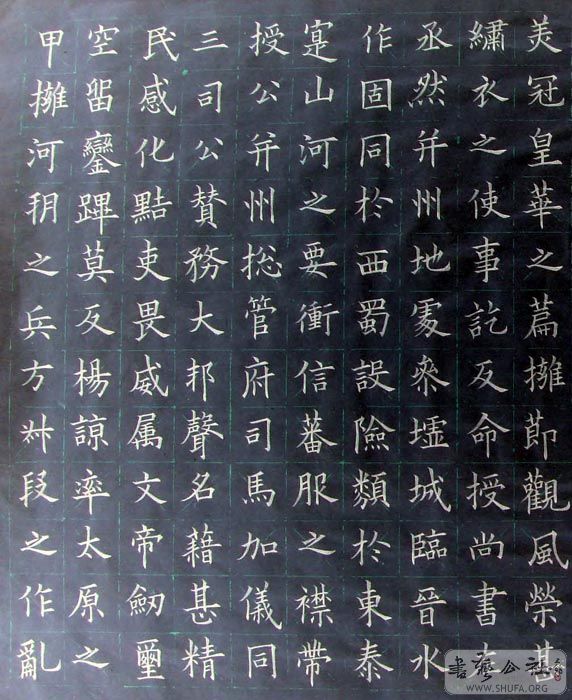 美冠皇華之篇擁節觀風榮甚
繡衣之使事訖反命授尚書左
丞然并州地處參墟城臨晉水
作固同於西蜀設險類於東泰
寔山河之要衝信蕃服之襟帶
授公并州総管府司馬加儀同
三司公賛務大邦聲名藉甚精
民感化黠吏畏威属文帝劒璽
空留鑾蹕莫反楊諒率太原之
甲擁河朔之兵方叔段之作亂
書藝公社
WWW.SHUFA.ORG